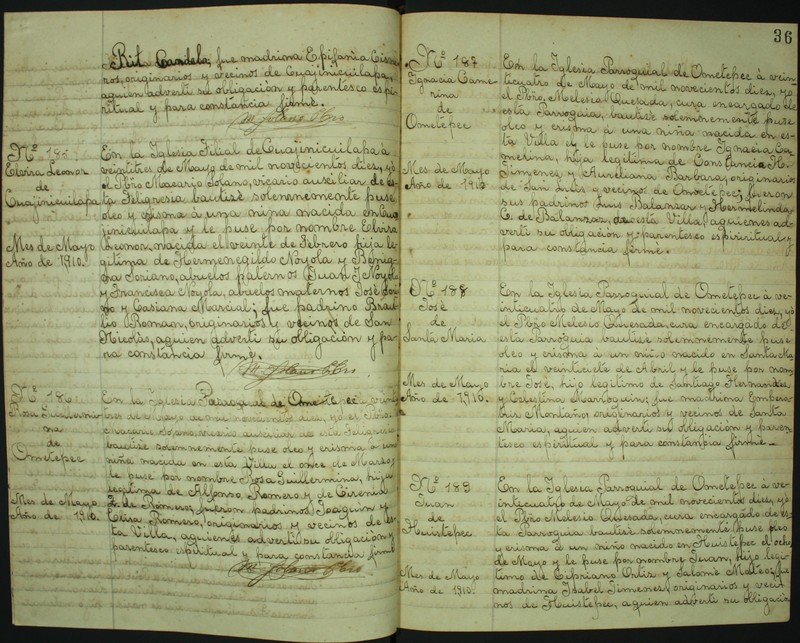 Rita Candela; fue madrina Epifania Cisne
ros, originarios y vecinos de Cuajinicuilapa,
aquien adverti su obligación y parentesco espi
ritual y para constancia firmé.
Nº 185
Elvira Leonor
de
Cuajinicuilapa
Mes de Mayo
Año de 1910.
En la Iglesia Filial de Cuajinicuilapa à
veintitres de Mayo de mil novecientos dies, yo
el Pbro Macario Solano, vicario auxiliar de es
ta Feligresia bautisé solemnemente puse
oleo y crisma à una niña nacida en Cua
jinicuilapa y le puse por nombre Elvira
Leonor, nacida el veinte de Febrero hija le
gitima de Hermenegildo Noyola y Benig
na Soriano, abuelos paternos Juan J. Noyola
y Francisca Noyola, abuelos maternos José Sori
no y Casiana Marcial; fue padrino Brau
lio Roman, originarios y vecinos de San
Nicolás, aquien adverti su obligación y pa
ra constancia firmé.
Nº 186
Rosa Guillermi
na
de
Ometepec
Mes de Mayo
Año de 1910.
En la Iglesia Parroquial de Ometepec à
tres de Mayo de mil novecientos dies, yo el Pbro
Macario Solano, vicario auxiliar de esta Feligresia
bautisé solemnemente puse oleo y crisma à una
niña nacida en esta Villa el once de Marzo y
le puse por nombre Rosa Guillermina, hija
legitima de Alfonso Romero y de Cirenia
de Romero; fueron padrinos Joaquin y
Elisa Romero, originarios y vecinos de es
ta Villa, aquienes adverti su obligación y
parentesco espiritual y para constancia firmé
36
Nº 187
Ignacia Came
rina
de
Ometepec
Mes de Mayo
Año de 1910
En la Iglesia Parroquial de Ometepec à vein
ticuatro de Mayo de mil novecientos dies, yo
el Pbro Melesio Quesada, cura encargado de
esta Parroquia, bautisé solemnemente puse
oleo y crisma à una niña nacida en es
ta Villa y le puse por nombre Ignacia Ca
merina, hija legitima de Constancia H.
Jimenez y Aureliana Barbara, originarios
de San Luis y vecinos de Ometepec; fueron
sus padrinos Luis Balanzar y Hermelinda
C. de Balanzar, de esta Villa, aquienes ad
verti su obligación y parentesco espiritual y
para constancia firmé.
Nº 188
José
de
Santa Maria
Mes de Mayo
Año de 1910.
En la Iglesia Parroquial de Ometepec à ve
inticuatro de Mayo de mil novecientos dies, yo
el Pbro Melesio Quesada, cura encargado de
esta Parroquia bautisé solemnemente puse
oleo y crisma à un niño nacido en Santa Ma
ria el veintisiete de Abril y le puse por nom
bre José, hijo legitimo de Santiago Hernandes
y Celestina Marroquin; fue madrina Empera
tris Montaño; originarios y vecinos de Santa
Maria, aquien adverti su obligación y paren
tesco espiritual y para constancia firmé.
Nº 189
Juan
de
Huistepec
Mes de Mayo
Año de 1910.
En la Iglesia Parroquial de Ometepec à ve
inticuatro de Mayo de mil novecientos dies, yo
el Pbro Melesio Quesada, cura encargado de es
ta Parroquia bautisé solemnemente puse oleo
y crisma à un niño nacido en Huistepec el ocho
de Mayo y le puse por nombre Juan, hijo legi
timo de Cipriano Ortiz y Salomé Mateo; fue
madrina Isabel Jimenes, originarios y veci
nos de Huistepec, aquien adverti su obligación